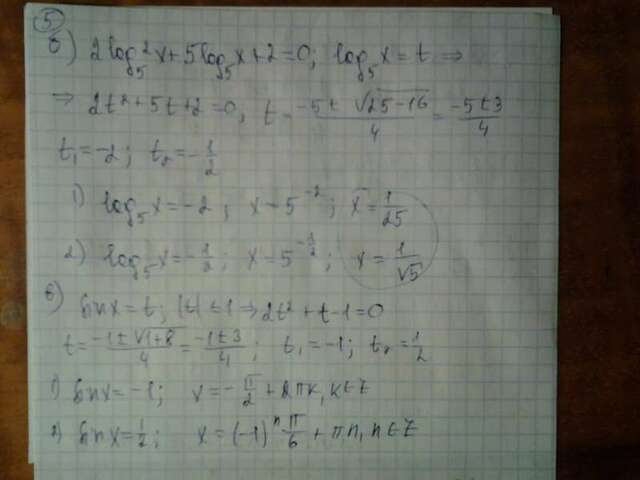 5
б) 2log₅²x+5log₅x+2=0; log₅x=t ⇒
⇒ 2t²+5t+2=0, t=(-5±√(25-16))/4=(-5±3)/4
t₁=-2; t₂=-1/2
1) log₅x=-2; x=5⁻²; x=1/25
2) log₅x=-1/2; x=5^(-1/2); x=1/√5
в) sinx=t; |t|≤1 ⇒ 2t²+t-1=0
t=(-1±√(1+8))/4=(-1±3)/4; t₁=-1; t₂=1/2
1) sinx=-1; x=-π/2+2πk, k∈Z
2) sinx=1/2; x=(-1)ⁿπ/6+πn, n∈Z